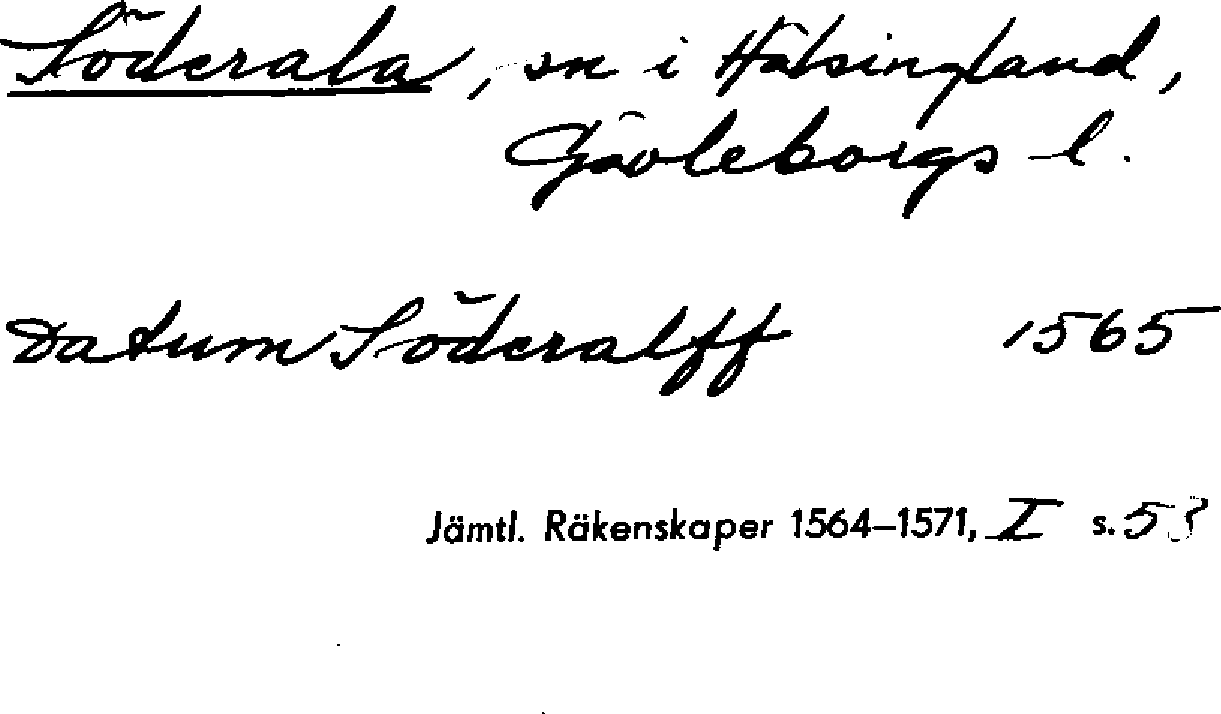 Söderala, sn i Hälsingland,
Gävleborgs l.
Datum Söderalff 1565
Jämtl. Räkenskaper 1564–1571, I s. 53